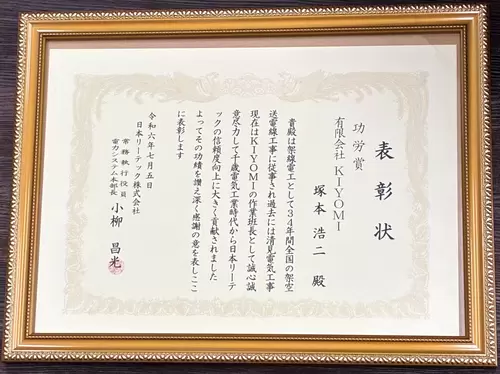 表彰状
功労賞
有限会社 KIYOMI
塚本浩二 殿
貴殿は架線電工として34年間全国の架空
送電線工事に従事され過去には清見電気工事
現在はKIYOMIの作業班長として誠心誠
意尽力して千歳電気工業時代から日本リーテ
ックの信頼度向上に大きく貢献されました
よってその功績を讃え深く感謝の意を表しここ
に表彰します
令和六年七月五日
日本リーテック株式会社
常務執行役員
電力システム本部長 小柳 昌光